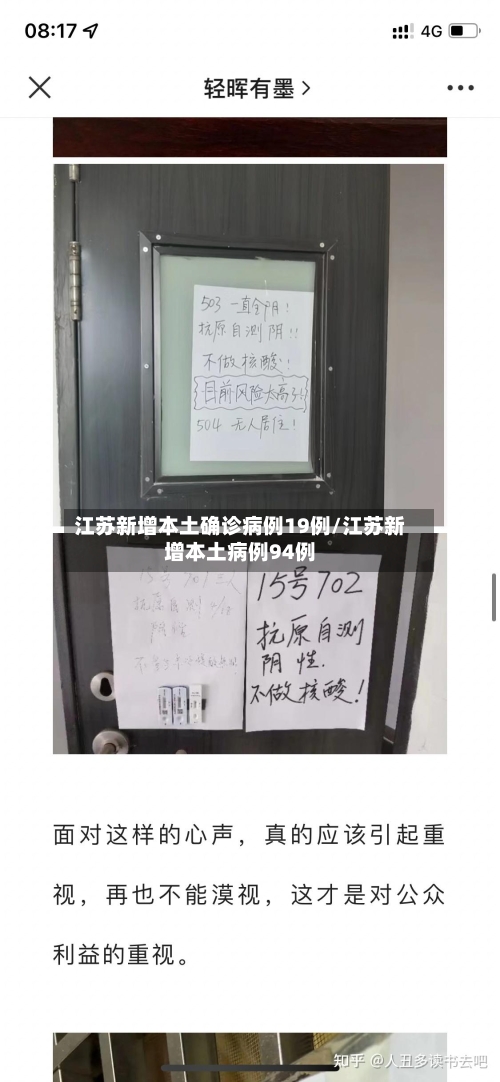 08:17
4G
轻晖有墨
503 一直全阴！
抗原自测 阴！！
不做核酸！
目前风险太高了！
504 无人居住！
江苏新增本土确诊病例19例/江苏新
增本土病例94例
抗原自测
阴性
15号702
抗原自测
阴性.
不做核酸！
面对这样的心声，真的应该引起重
视，再也不能漠视，这才是对公众
利益的重视。
知乎 @人丑多读书去吧